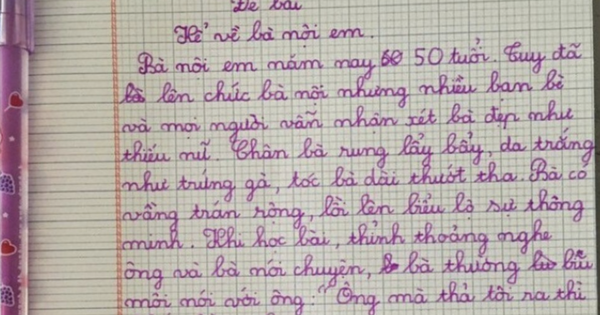 Đề bài
Kể về bà nội em.
Bà nội em năm nay 50 tuổi. Tuy đã
lên chức bà nội nhưng nhiều bạn bè
và mọi người vẫn nhận xét bà đẹp như
thiếu nữ. Chân bà rung lẩy bẩy, da trắng
như trứng gà, tóc bà dài thướt tha. Bà có
vầng trán rộng, lồi lên biểu lộ sự thông
minh. Khi học bài, thỉnh thoảng nghe
ông và bà nói chuyện, bà thường bĩu
môi nói với ông: "Ông mà thả tôi ra thì